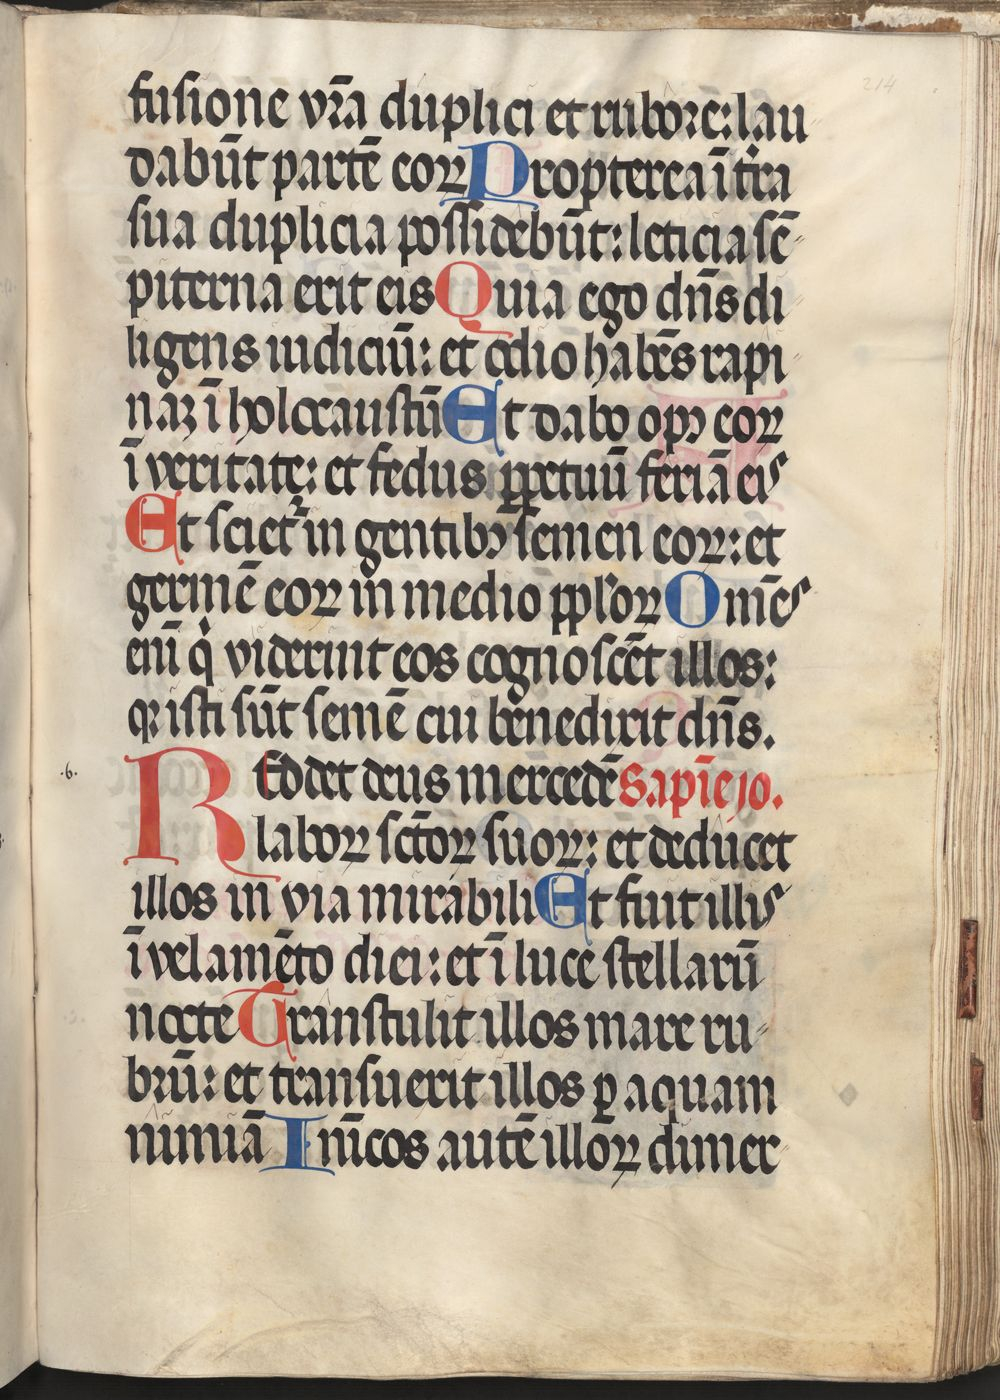 214
fusione vr̄a duplici et rubore: lau
dabūt partē eoꝝ Propterea ī tr̄ra
sua duplicia possidebūt: leticia sē-
piterna erit eis Quia ego dn̄s di
ligens iudiciū: et odio habēs rapi-
naꝫ ī holocaustū Et dabo opꝰ eoꝝ
ī veritate: et fedus ꝑpetuū feriā eis
Et scietr̄ in gentibꝫ semen eoꝝ: et
germē eoꝝ in medio pplʼoꝝ Omēs
enī q̇ viderint eos cognoscēt illos:
qꝛ isti sūt semē cui benedixit dn̄s.
.6.
REddet deus mercedē Sapīe jo.
laboꝝ sctōꝝ suoꝝ: et deducet
illos in via mirabili Et fuit illis
ī velamēto diei: et ī luce stellarū
nocte Transtulit illos mare ru-
brū: et transuexit illos ꝑ aquam
nimiā Inīcos autē illoꝝ dimer-